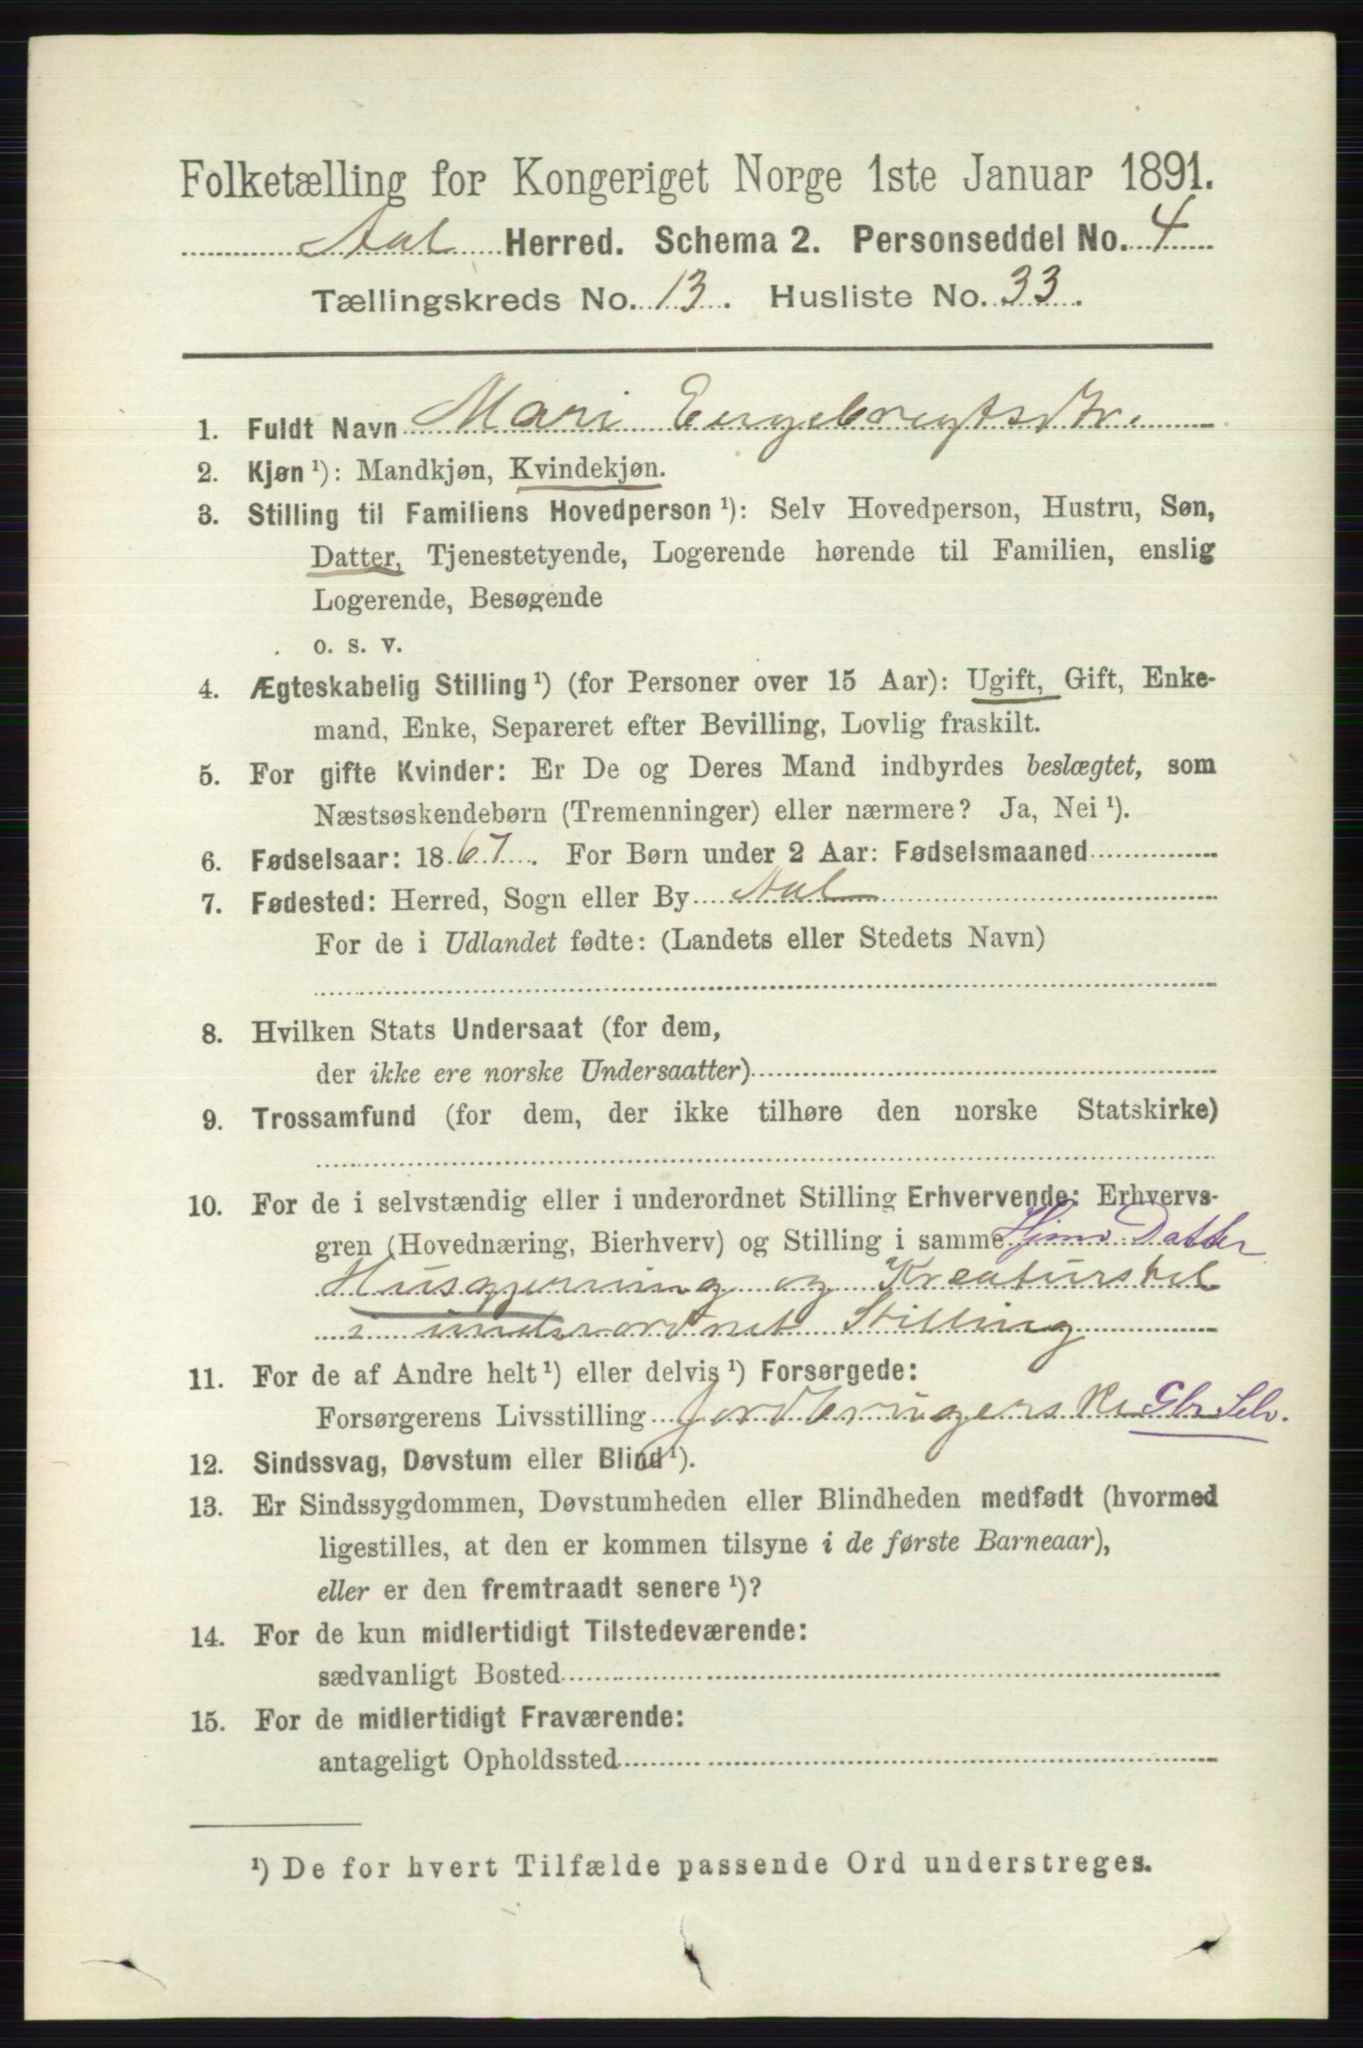 Folketælling for Kongeriget Norge 1ste Januar 1891.
Aal Herred. Schema 2. Personseddel No. 4
Tællingskreds No. 13. Husliste No. 33.
1. Fuldt Navn Mari Engebregtsdtr.
2. Kjøn ¹): Mandkjøn, Kvindekjøn.
3. Stilling til Familiens Hovedperson ¹): Selv Hovedperson, Hustru, Søn,
Datter, Tjenestetyende, Logerende hørende til Familien, enslig
Logerende, Besøgende
o. s. v.
4. Ægteskabelig Stilling ¹) (for Personer over 15 Aar): Ugift, Gift, Enke-
mand, Enke, Separeret efter Bevilling, Lovlig fraskilt.
5. For gifte Kvinder: Er De og Deres Mand indbyrdes beslægtet, som
Næstsøskendebørn (Tremenninger) eller nærmere? Ja, Nei ¹).
6. Fødselsaar: 1867. For Børn under 2 Aar: Fødselsmaaned
7. Fødested: Herred, Sogn eller By Aal
For de i Udlandet fødte: (Landets eller Stedets Navn)
8. Hvilken Stats Undersaat (for dem,
der ikke ere norske Undersaatter)
9. Trossamfund (for dem, der ikke tilhøre den norske Statskirke)
10. For de i selvstændig eller i underordnet Stilling Erhvervende: Erhvervs-
gren (Hovednæring, Bierhverv) og Stilling i samme Hjmv Datter
Husgjerning og Kreaturstel
i underordnet Stilling
11. For de af Andre helt ¹) eller delvis ¹) Forsørgede:
Forsørgerens Livsstilling Jordbrugerske Gbr Selv.
12. Sindssvag, Døvstum eller Blind ¹).
13. Er Sindssygdommen, Døvstumheden eller Blindheden medfødt (hvormed
ligestilles, at den er kommen tilsyne i de første Barneaar),
eller er den fremtraadt senere ¹)?
14. For de kun midlertidigt Tilstedeværende:
sædvanligt Bosted
15. For de midlertidigt Fraværende:
antageligt Opholdssted
¹) De for hvert Tilfælde passende Ord understreges.